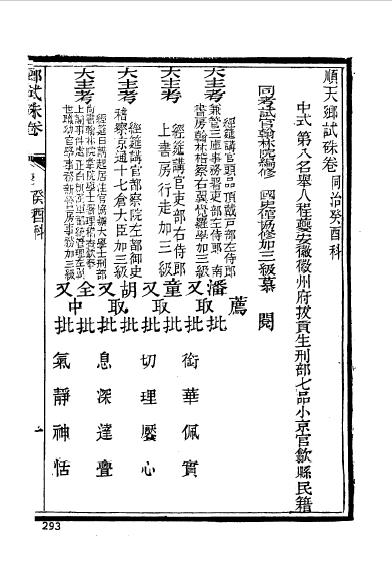 順天鄉試硃卷 同治癸酉科
中式第八名舉人程夔安徽徽州府拔貢生刑部七品小京官歙縣民籍
同考試官翰林院編修 國史館協修加三級慕 閱
薦
大主考 經筵講官頭品頂戴戶部左侍郎
兼管三庫事務署吏部左侍郎 南
書房翰林稽察右翼 學加三級 潘 取
又批 銜華佩實
大主考 經筵講官吏部右侍郎
上書房行走加三級 童 取
又批 切理饜心
大主考 經筵講官都察院左都御史
稽察京通十七倉大臣加三級 胡 取
又批 息深達亹
大主考 經筵日講起居注官協辦大學士刑部
全 中
又批 氣靜神恬
鄉試硃卷 癸酉科 一
293